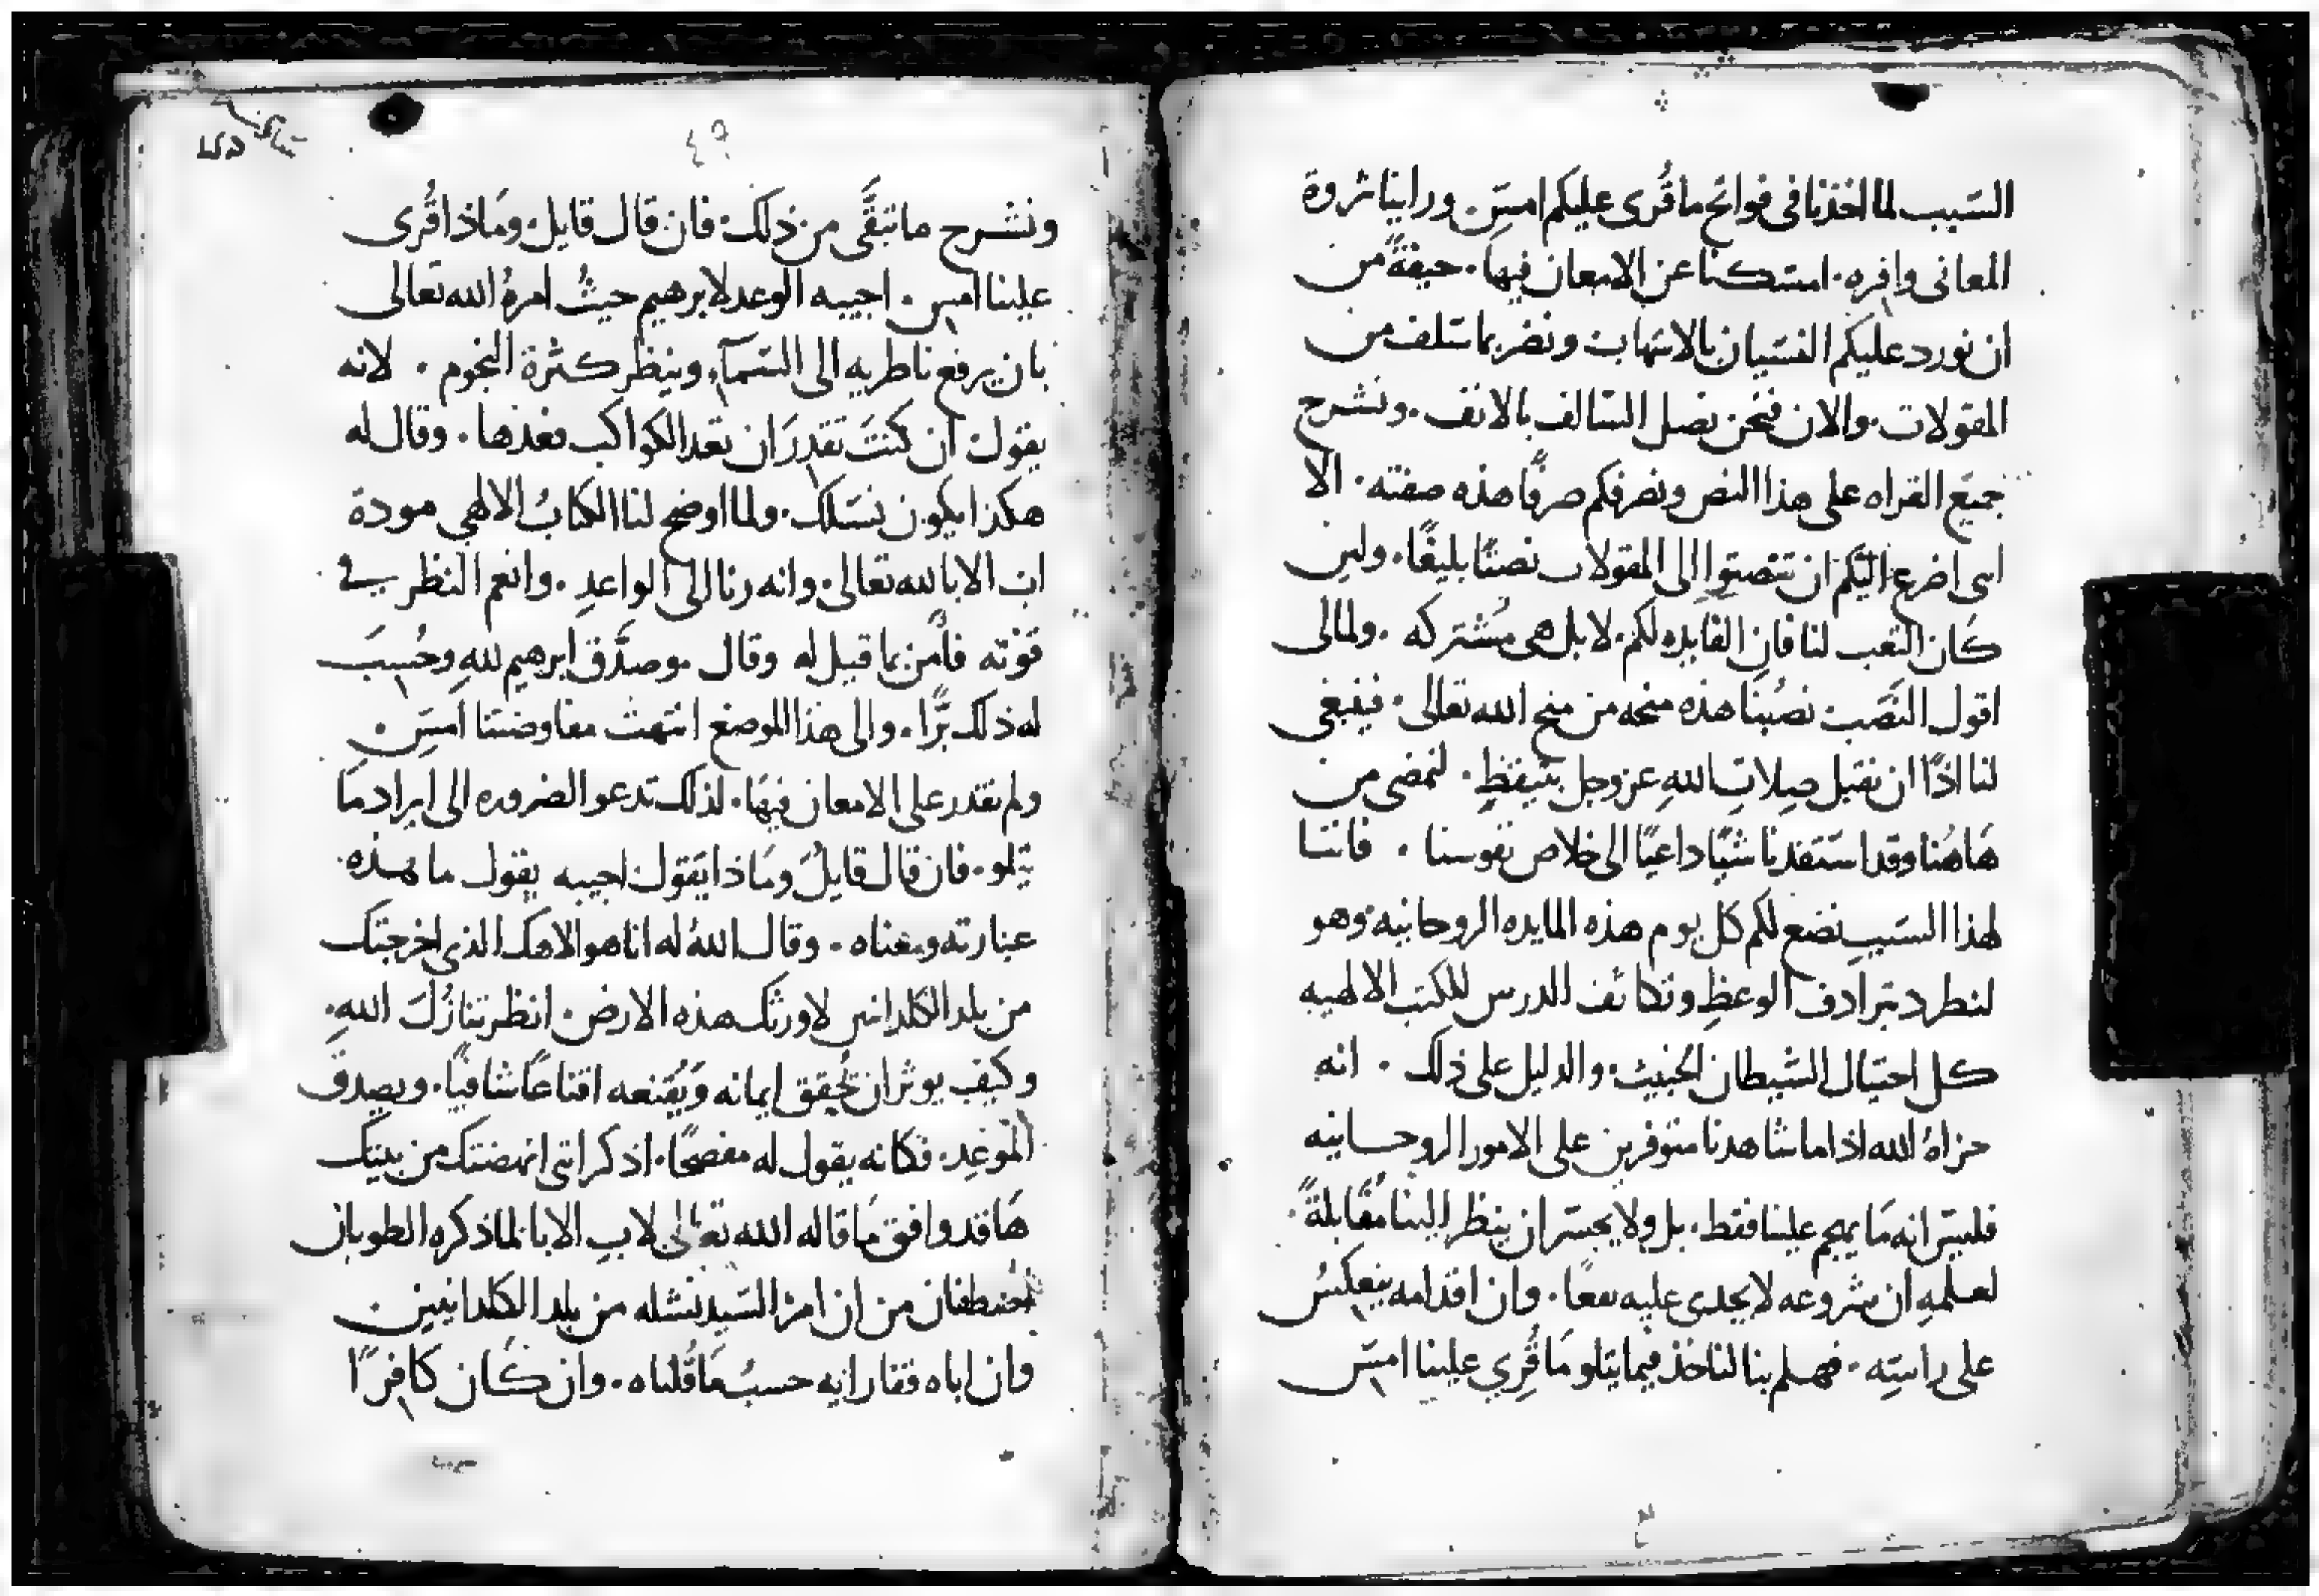 السَبب لما اخذنا في فواتح ما قُرى عليكم امسِ. وراينا ثروة
المعانى وافره. امسكنا عن الامعان فيها. خيفةً من
ان نورد عليكم النسيان بالاسهاب ونضر بما سلف من
المقولات. والان فنحن نصل السالف بالانف. ونشرح
جميَع القراه على هذا النص ونصرفكم صرفًا هذه صفته. الا
انى اضرع اليكم ان تنصتوا الى المقولات نصتًا بليغًا. ولين
كَان التعب لنا فان الفايده لكم. لا بل هى مُشتركه. ولما لى
اقول النَصَب نصُبنا هذه منحه من منح الله تعالى. فينبغى
لنا اذًا ان نقبل صِلاتِ اللهِ عز وجل بتيقظٍ. لنمضى من
هَاهُنا وقد استَفدنا شيًا داعيًا الى خلاص نفوسنا. فاننا
لهذا السَببِ نضع لكم كل يوم هذه المايده الروحانيه وهو
لنطرد بترادف الوعظِ وتكاثف الدرس للكتب الالهيه
كل احتيال الشيطان الخبيث. والدليل على ذلك. انه
خزاهُ الله اذا ما شاهدنا متوفرين على الامور الروحانيه
فليسَ انه مَا يهجم علينا فقط. بل ولا يجسَر ان ينظر الينا مُقابلةً.
لعلمهِ ان شروعه لا يجدى عليه نفعًا. وان اقدامه ينعكسُ
على راسَهِ. فهلم بنا لناخذ فيما يتلو مَا قُرِي علينا امسَ
٤٩
ونشرح ما تبقَّى من ذلك. فان قال قايل. ومَاذا قُرى
علينا امس. اجيبه الوعد لابرهيم حيثُ امرهُ الله تعالى
بان يرفع ناظريه الى السَمآءِ وينظر كثرة النجوم. لانه
يقول ان كنتَ تقدرَ ان تعد الكواكب فعدها. وقال له
هكذا يكون نسَلك. ولما اوضح لنا الكتابُ الالهى مودة
اب الابا لله تعالى. وانه رنا الى الواعدِ. وانعم النظر في
قوته فامن بما قيل له وقال وصدَّق ابرهيم للهِ وحُسِبَ
له ذلك برًّا. والى هذا الموضع انتهت مفاوضتنا امسَ.
ولم نقدر على الامعان فيهَا. لذلك تدعو الضروره الى ايراد مَا
يتلو. فان قال قايلٌ ومَاذا يَقول اجيبه يقول ما هذه
عبارته ومعناه. وقال اللهُ له انا هو الاهك الذى اخرجتك
من بلد الكلدانين لاورثك هذه الارض. انظر تنازُلَ اللهِ.
وكيف يوثر ان تُحقق ايمانه وَيُقنعه اقناعًا شافيًا. ويصدقَ
الموعد. فكانه يقول له مفصحًا. اذكر انى انهضتك من بيتك
هَا قد وافق مَا قاله الله تعالى لابِ الابا لما ذكره الطوبان
اصطفان من ان امرَ السَيد نشله من بلد الكلدانيين.
وان اباه فقار ايه حسبُ مَا قُلناه. وان كَان كافِرًا